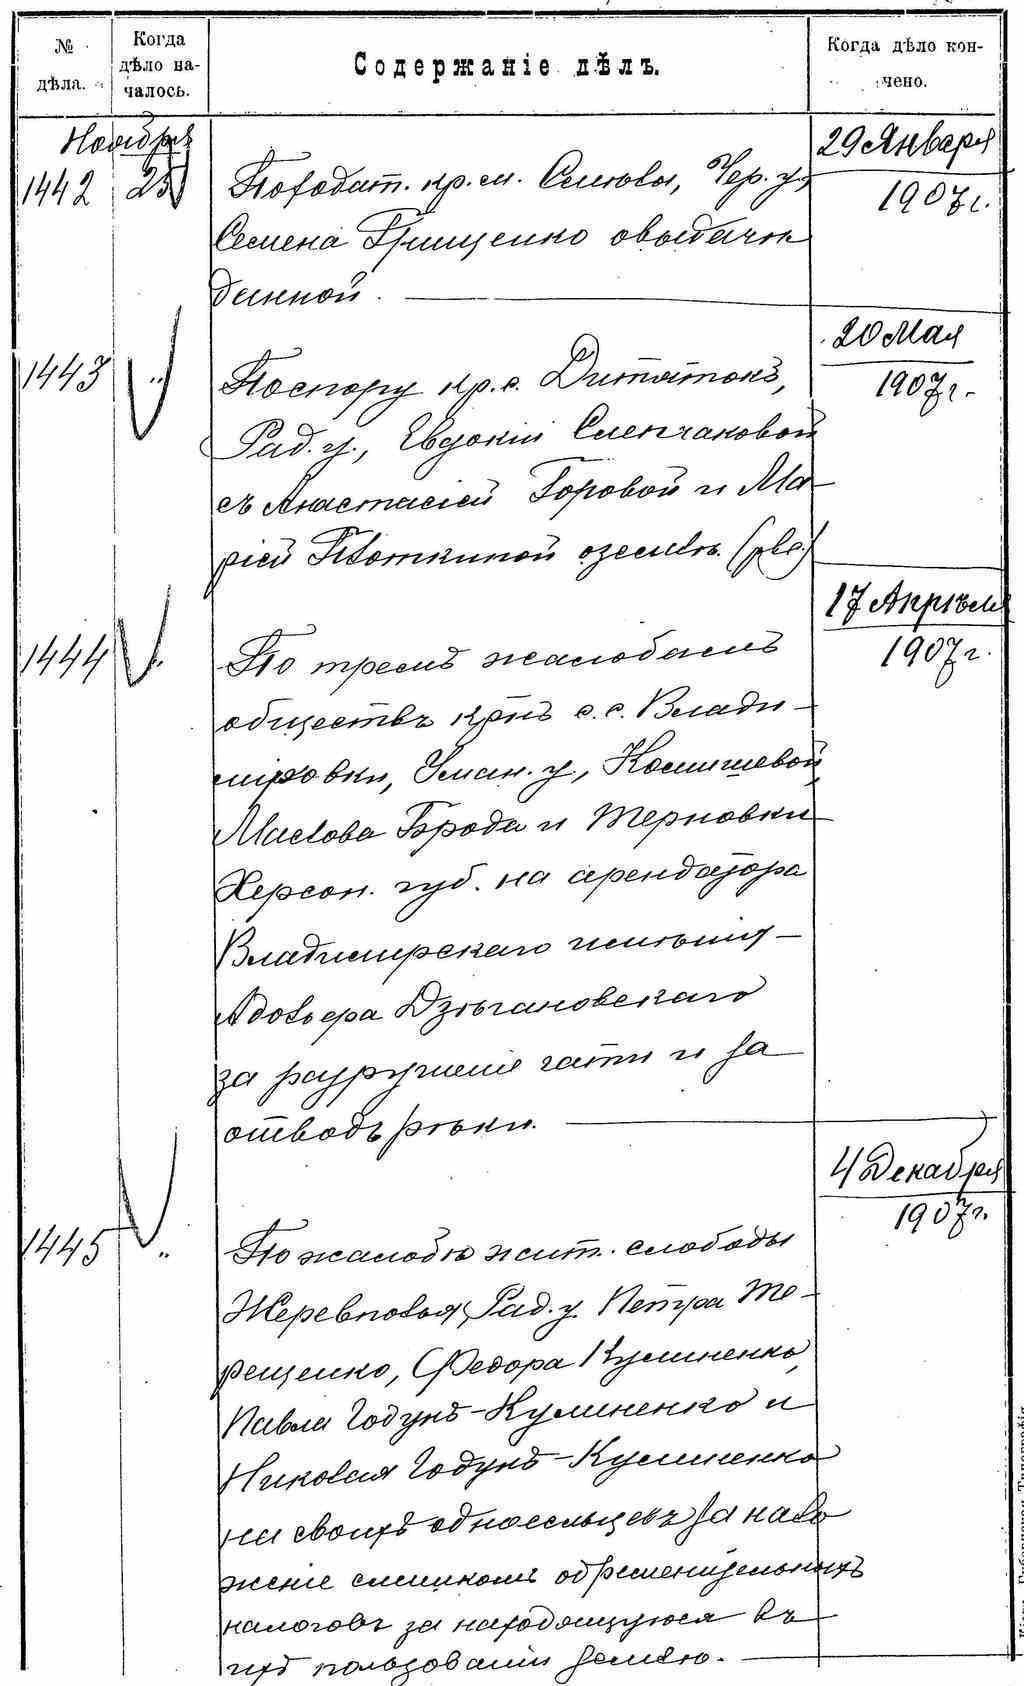 № дѣла.
Когда дѣло на-
чалось.
Содержаніе дѣлъ.
Когда дѣло кон-
чено.
Ноября
1442 25
По ходат. кр. м. Смѣлы, Чер. у.,
Семена Грищенко о выдачѣ
данной.
29 Января
1907 г.
1443 "
По спору кр. с. Дитятокъ,
Рад. у., Евдокіи Слепчаковой
съ Анастасіей Горовой и Ма-
ріей Плоткиной о землѣ.
20 Мая
1907 г.
1444 "
По тремъ жалобамъ
обществъ крнъ с.с. Влади-
міровки, Уман. у., Комишевой,
Маслова Брода и Терновки
Херсон. губ. на арендатора
Владимірскаго имѣнія
Адольфа Дзюгановскаго
за разрушеніе гати и за
отводъ рѣки.
17 Апрѣля
1907 г.
1445 "
По жалобѣ жит. слободы
Жеревполья, Рад. у. Петра Те-
рещенко, Федора Кулиненко,
Павла Годунъ-Кулиненко и
Николая Годунъ-Кулиненко
на своихъ односельцевъ за нало
женіе слишкомъ обременительныхъ
налоговъ за находящуюся въ
ихъ пользованіи землю.
4 Декабря
1907 г.